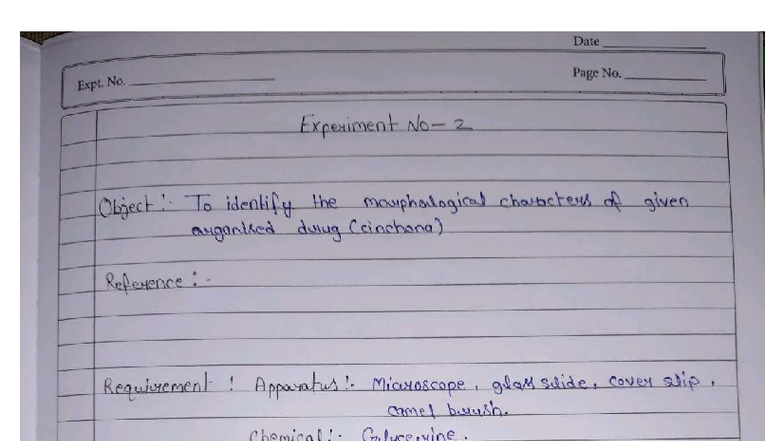 Date
Expt. No.
Page No.
Experiment No - 2
Object :- To identify the morphological characters of given
organised drug (cinchona)
Reference :-
Requirement : Apparatus :- Microscope, glass slide, cover slip,
camel brush.
Chemical :- Glycerine.